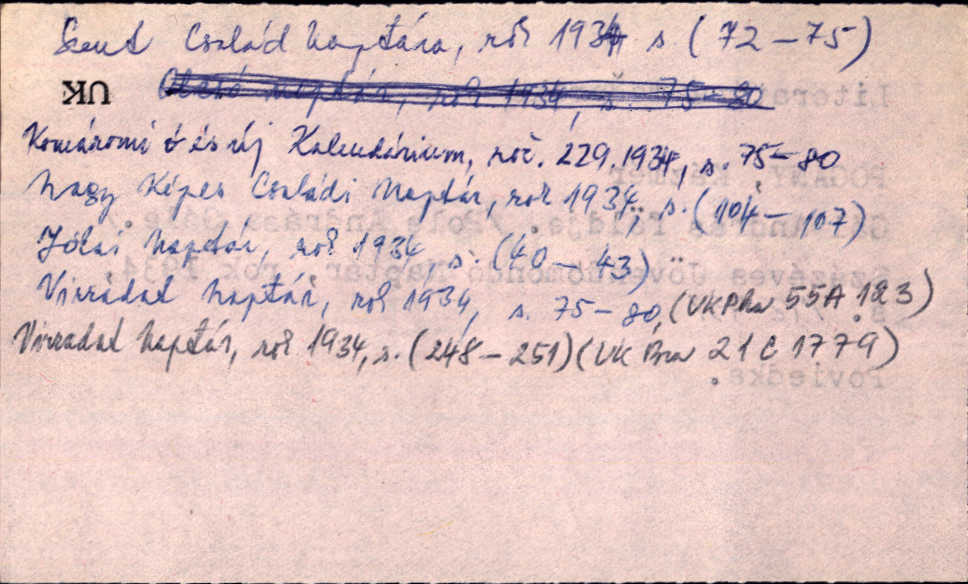 Szent Család naptára, rok 1934 s (72-75)
UK
Olcsó naptár, rok 1934, s. 75-80
Komáromi ó és új Kalendárium, roč. 229.1934, s. 75-80
Nagy Képes Családi Naptár, rok 1934, s. (104-107)
Jókai Naptár, rok 1934, s. (40-43)
Virradat naptár, rok 1934, s. 75-80, (UKPha 55A 123)
Virradat Naptár, rok 1934, s. (248-251) (UK Bra 21 C 1779)